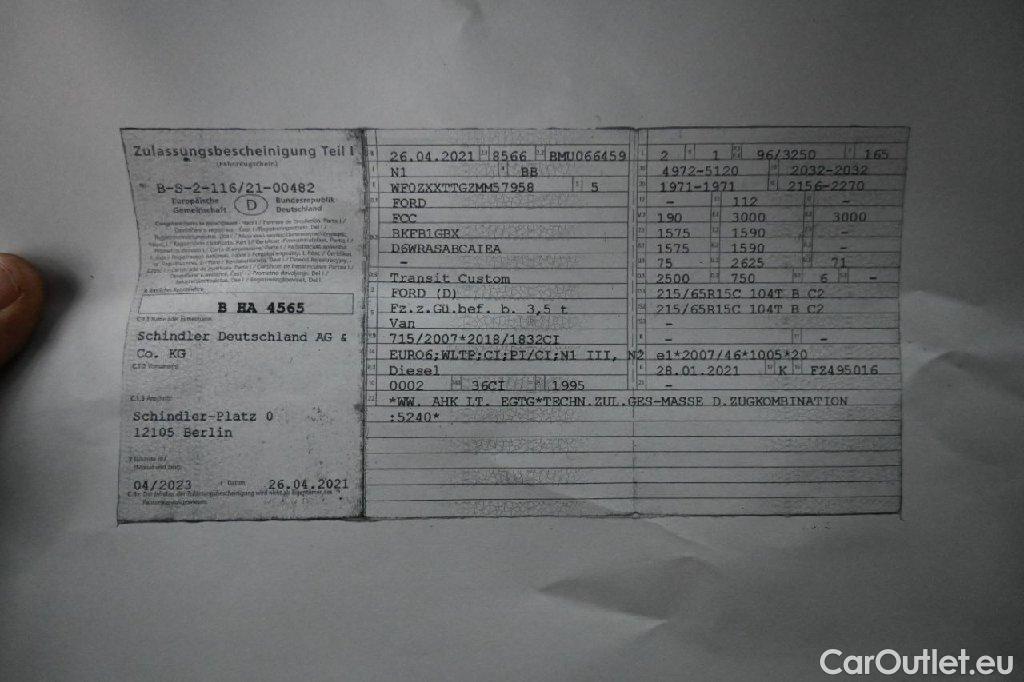 Zulassungsbescheinigung Teil I
(Fahrzeugschein)
B-S-2-116/21-00482
Europäische Gemeinschaft D Bundesrepublik Deutschland
B HA 4565
C.1.1 Name oder Firmenname
Schindler Deutschland AG &
Co. KG
C.1.2 Vorname(n)
C.1.3 Anschrift
Schindler-Platz 0
12105 Berlin
04/2023 Datum 26.04.2021
26.04.2021 8566 BMU066459
N1 BB
WF0ZXXTTGZMM57958 5
FORD
FCC
BKFB1GBX
D6WRASABCAIEA
-
Transit Custom
FORD (D)
Fz.z.Gü.bef. b. 3,5 t
Van
715/2007*2018/1832CI
EURO6;WLTP;CI;PI/CI;N1 III, N2
Diesel
0002 36CI 1995
*WW. AHK LT. EGTG*TECHN.ZUL.GES-MASSE D.ZUGKOMBINATION
:5240*
2 1 96/3250 165
4972-5120 2032-2032
1971-1971 2156-2270
- 112 -
190 3000 3000
1575 1590 -
1575 1590 -
75 2625 71
2500 750 6 -
215/65R15C 104T B C2
215/65R15C 104T B C2
-
-
e1*2007/46*1005*20
28.01.2021 K FZ495016
-
CarOutlet.eu